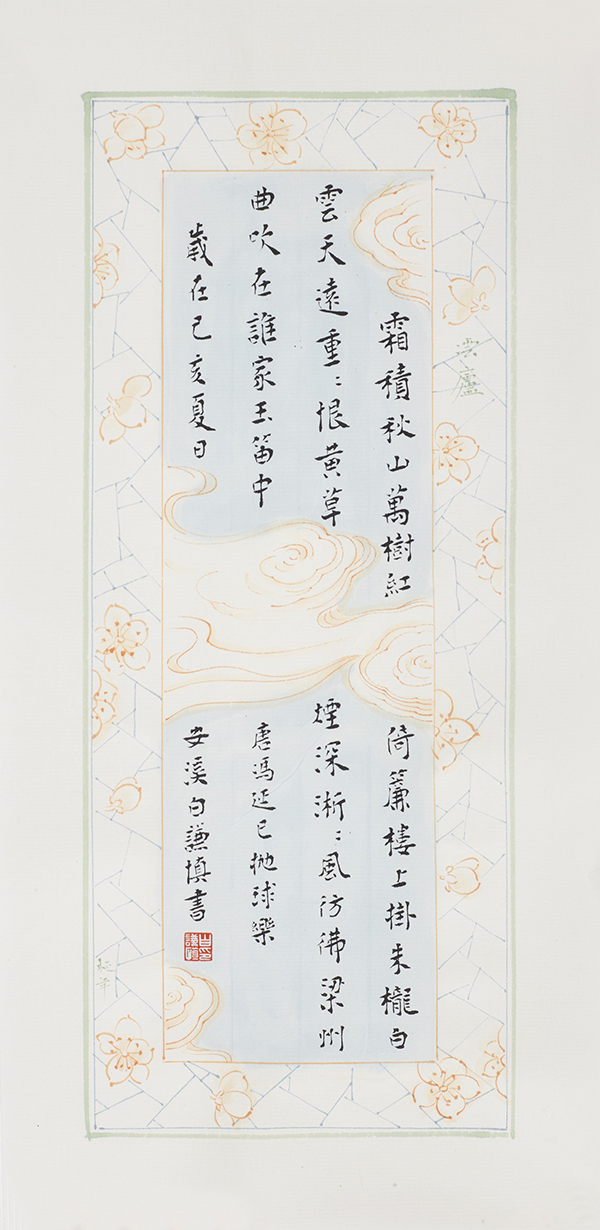 霜積秋山萬樹紅倚簾樓上掛朱櫳白
雲天遠重〻恨黄草煙深淅〻風彷彿梁州
曲吹在誰家玉笛中唐馮延巳抛球樂
歲在己亥夏日安溪白謙慎書